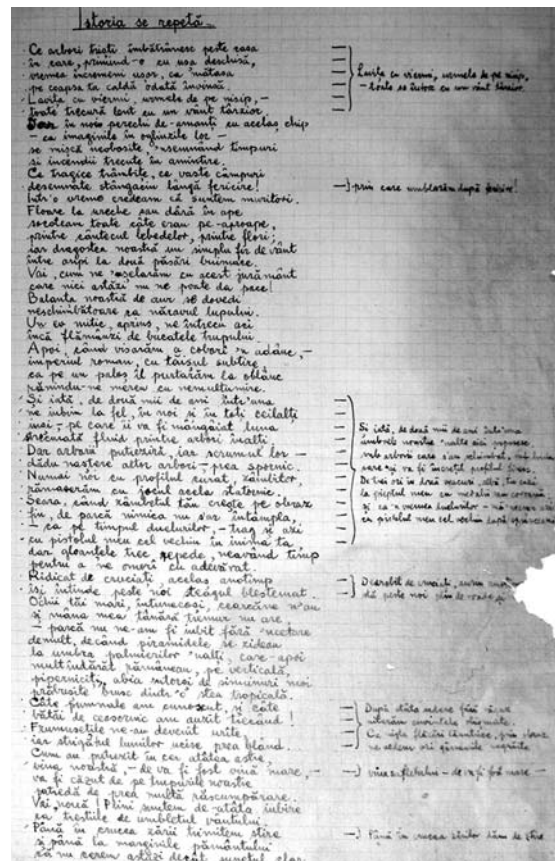 Istoria se repetă.
Ce arbori triști îmbătrânesc peste casa
în care, primind-o cu ușa deschisă,
vremea încremeni ușor, ca mătasa
pe coapsa ta caldă odată învinsă.
Lavița cu viermi, urmele de pe nisip, –
toate trecură lent cu un vânt târzior.
în noi perechi de-amanți cu același chip
– ca imaginile în oglinzile lor –
se mișcă neobosite, 'nsemnând timpuri
și incendii trecute în amintire.
Ce tragice trâmbițe, ce vaste câmpuri
desemnate stângaciu lângă fericire!
Într'o vreme credeam că suntem muritori.
Floare la ureche sau dâră în ape
socoteam toate câte erau pe-aproape,
printre cântecul lebedelor, printre flori;
iar dragostea noastră un simplu fir de vânt
între aripi la două păsări buimace.
Vai, cum ne 'nșelarăm cu acest jurământ
care nici astăzi nu ne poate da pace!
Balanța noastră de aur se dovedi
neschimbătoare ca năravul lupului.
Un ev mitic, aprins, ne întrecu aci
încă flămânzi de bucatele trupului.
Apoi, când visarăm a coborî 'n adânc, –
imperiul roman, cu tăișul subțire
ca pe un paloș îl purtarăm la oblânc
rănindu-ne mereu cu nemulțumire.
Și iată, de două mii de ani într'una
ne iubim la fel, în noi și în toți ceilalți
mai, – pe care îi va fi mângâiat luna
strecurată fluid printre arbori înalți.
Dar arborii putreziră, iar scrumul lor –
dădu naștere altor arbori – prea spornic.
Numai noi cu profilul curat, zâmbitor,
rămaserăm cu jocul acela statornic.
Seara, când zâmbetul tău crește pe obraz
fin, de parcă nimica nu s'ar întâmpla,
– ca pe timpul duelurilor – trag și azi
cu pistolul meu cel vechiu în inima ta
dar gloanțele trec repede, neavând timp
pentru a ne omorî cu adevărat.
Ridicat de cruciați, același anotimp
își întinde peste noi steagul blestemat.
Ochii tăi mari, întunecoși, cearcăne n'au
și mâna mea tânără tremur nu are,
– parcă nu ne-am fi iubit fără 'ncetare
demult, decând piramidele se zideau
la umbra palmierilor 'nalți, care-apoi
mult îndărăt rămâneau, pe verticală,
prăbușite brusc dintr'o stea tropicală.
Câte fumnale am cunoscut, și câte
bătăi de ceasornic am auzit trecând!
Frumusețile ne-au devenit urîte
iar strigătul lunilor ucise prea blând.
Cum au putrezit în cer atâtea astre
vina noastră, – de va fi fost vină mare, –
va fi căzut de pe timpurile noastre
de prea multă răscumpărare.
Vai, nouă! Plini suntem de-atâta iubire
ca trestiile de umbletul vântului.
Până în crucea zării trimitem știre
și până la marginile pământului
că nu cerem astăzi decât sunetul clar
Lavița cu viermi, urmele de pe nisip,
– toate se cu un vânt târzior.
prin care umblarăm după fericire!
Și iată, de două mii de ani într'una
umbrele noastre 'nalte aici
sub arborii care s'au schimbat,
care și va fi profilul
De trei ori în două veacuri,
la pieptul meu cu
și ca 'n vremea duelurilor –
cu pistolul meu cel vechiu după
de cruciați,
dă peste noi plin de
După atâta
cuvintele
Ca niște flăcări
ne vedem
vina sufletului – de va fi fost mare –
Până în crucea zărilor dăm de știre